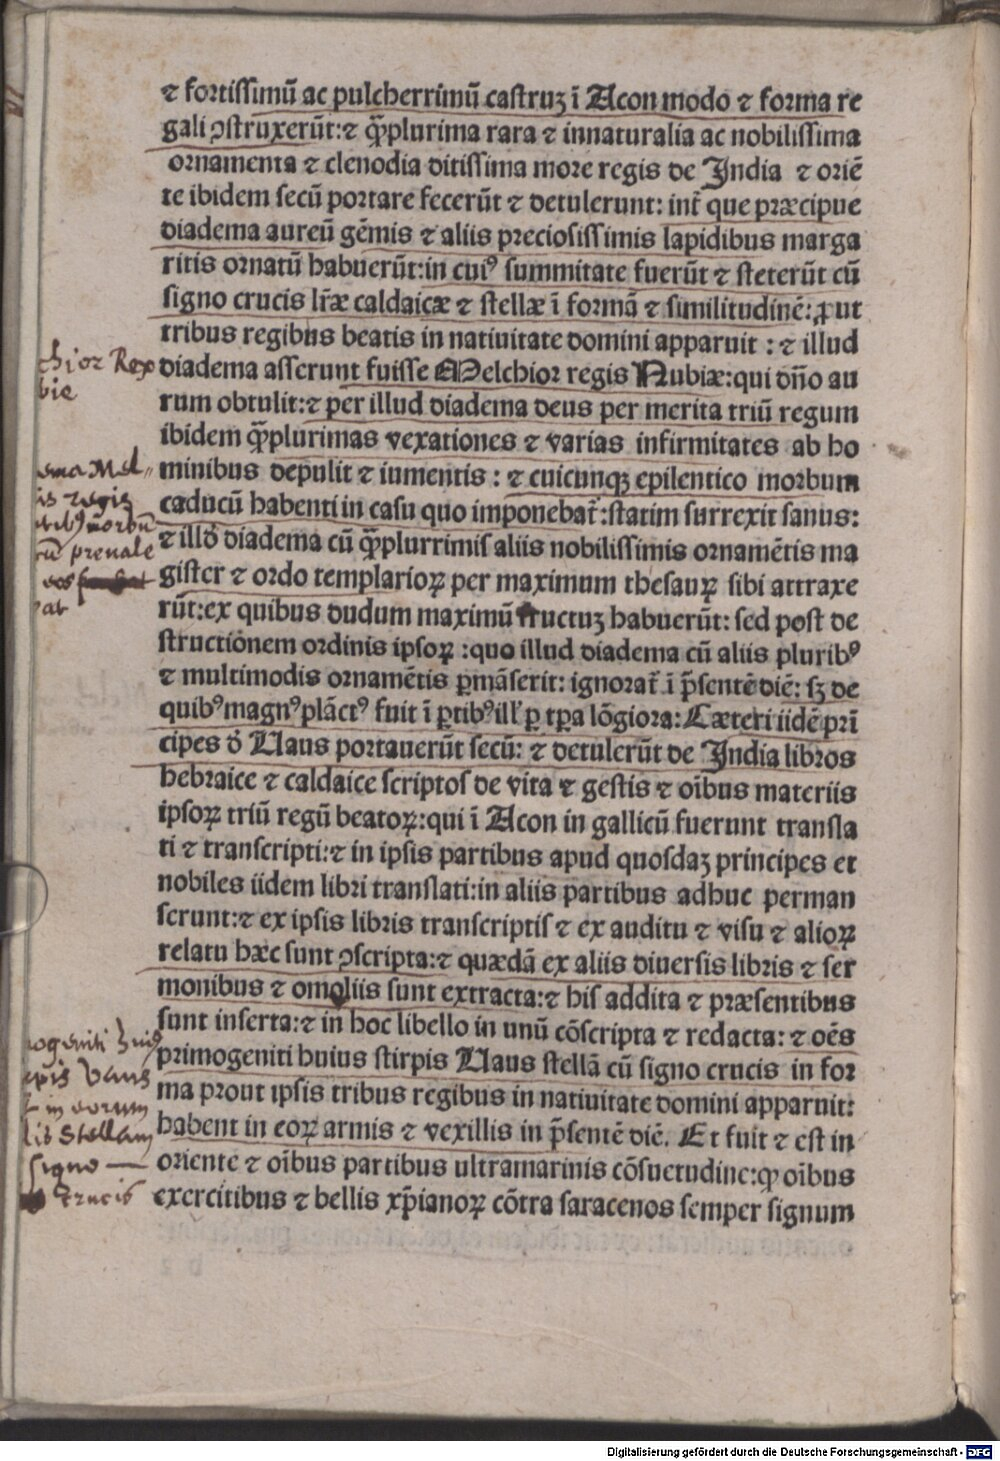 ⁊ fortissimū ac pulcherrimū castruꝫ ī Acon modo ⁊ forma re
gali ꝯstruxerūt:⁊ qᷓplurima rara ⁊ innaturalia ac nobilissima
ornamenta ⁊ clenodia ditissima more regis de India ⁊ oriē
te ibidem secū portare fecerūt ⁊ detulerunt: int̄ que præcipue
diadema aureū gēmis ⁊ aliis preciosissimis lapidibus marga
ritis ornatū habuerūt:in cuiꝰ summitate fuerūt ⁊ steterūt cū
signo crucis lr̄æ caldaicæ ⁊ stellæ ī formā ⁊ similitudinē:ꝓut
tribus regibus beatis in natiuitate domini apparuit : ⁊ illud
diadema asserunt fuisse Melchior regis Nubiæ:qui dño au
rum obtulit:⁊ per illud diadema deus per merita triū regum
ibidem qᷓplurimas vexationes ⁊ varias infirmitates ab ho
minibus depulit ⁊ iumentis : ⁊ cuicunqꝫ epilentico morbum
caducū habenti in casu quo imponebat̄:statim surrexit sanus:
⁊ illđ diadema cū qᷓplurrimis aliis nobilissimis ornamētis ma
gister ⁊ ordo templarioꝝ per maximum thesauꝝ sibi attraxe
rūt:ex quibus dudum maximū fructuꝫ habuerūt: sed post de
structionem ordinis ipsoꝝ :quo illud diadema cū aliis pluribꝰ
⁊ multimodis ornamētis ꝑmāserit: ignorat̄ ī p̄sentē diē: sꝫ de
quibꝰ magnꝰ plāctꝰ fuit ī ꝑtibꝰ ill' ꝑ tꝑa lōgiora: Cæteri iidē prī
cipes đ Uaus portauerūt secū: ⁊ detulerūt de India libros
hebraice ⁊ caldaice scriptos de vita ⁊ gestis ⁊ oībus materiis
ipsoꝝ triū regū beatoꝝ:qui ī Acon in gallicū fuerunt transla
ti ⁊ transcripti:⁊ in ipsis partibus apud quosdaꝫ principes et
nobiles iidem libri translati:in aliis partibus adhuc perman
serunt:⁊ ex ipsis libris transcriptis ⁊ ex auditu ⁊ visu ⁊ alioꝝ
relatu hæc sunt ꝯscripta:⁊ quædā ex aliis diuersis libris ⁊ ser
monibus ⁊ omeliis sunt extracta:⁊ his addita ⁊ præsentibus
sunt inserta:⁊ in hoc libello in unū cōscripta ⁊ redacta: ⁊ oēs
primogeniti huius stirpis Uaus stellā cū signo crucis in for
ma prout ipsis tribus regibus in natiuitate domini apparuit:
habent in eoꝝ armis ⁊ vexillis in p̄sentē diē. Et fuit ⁊ est in
oriente ⁊ oībus partibus ultramarinis cōsuetudine:ꝙ oībus
exercitibus ⁊ bellis xp̄ianoꝝ cōtra saracenos semper signum
chior Rex
bie
ema Mel
is regis
morbū
prenale
at
ogeniti hui9
rpis Vaus
in eorum
lis Stellam
signo
Crucis
Digitalisierung gefördert durch die Deutsche Forschungsgemeinschaft - DFG